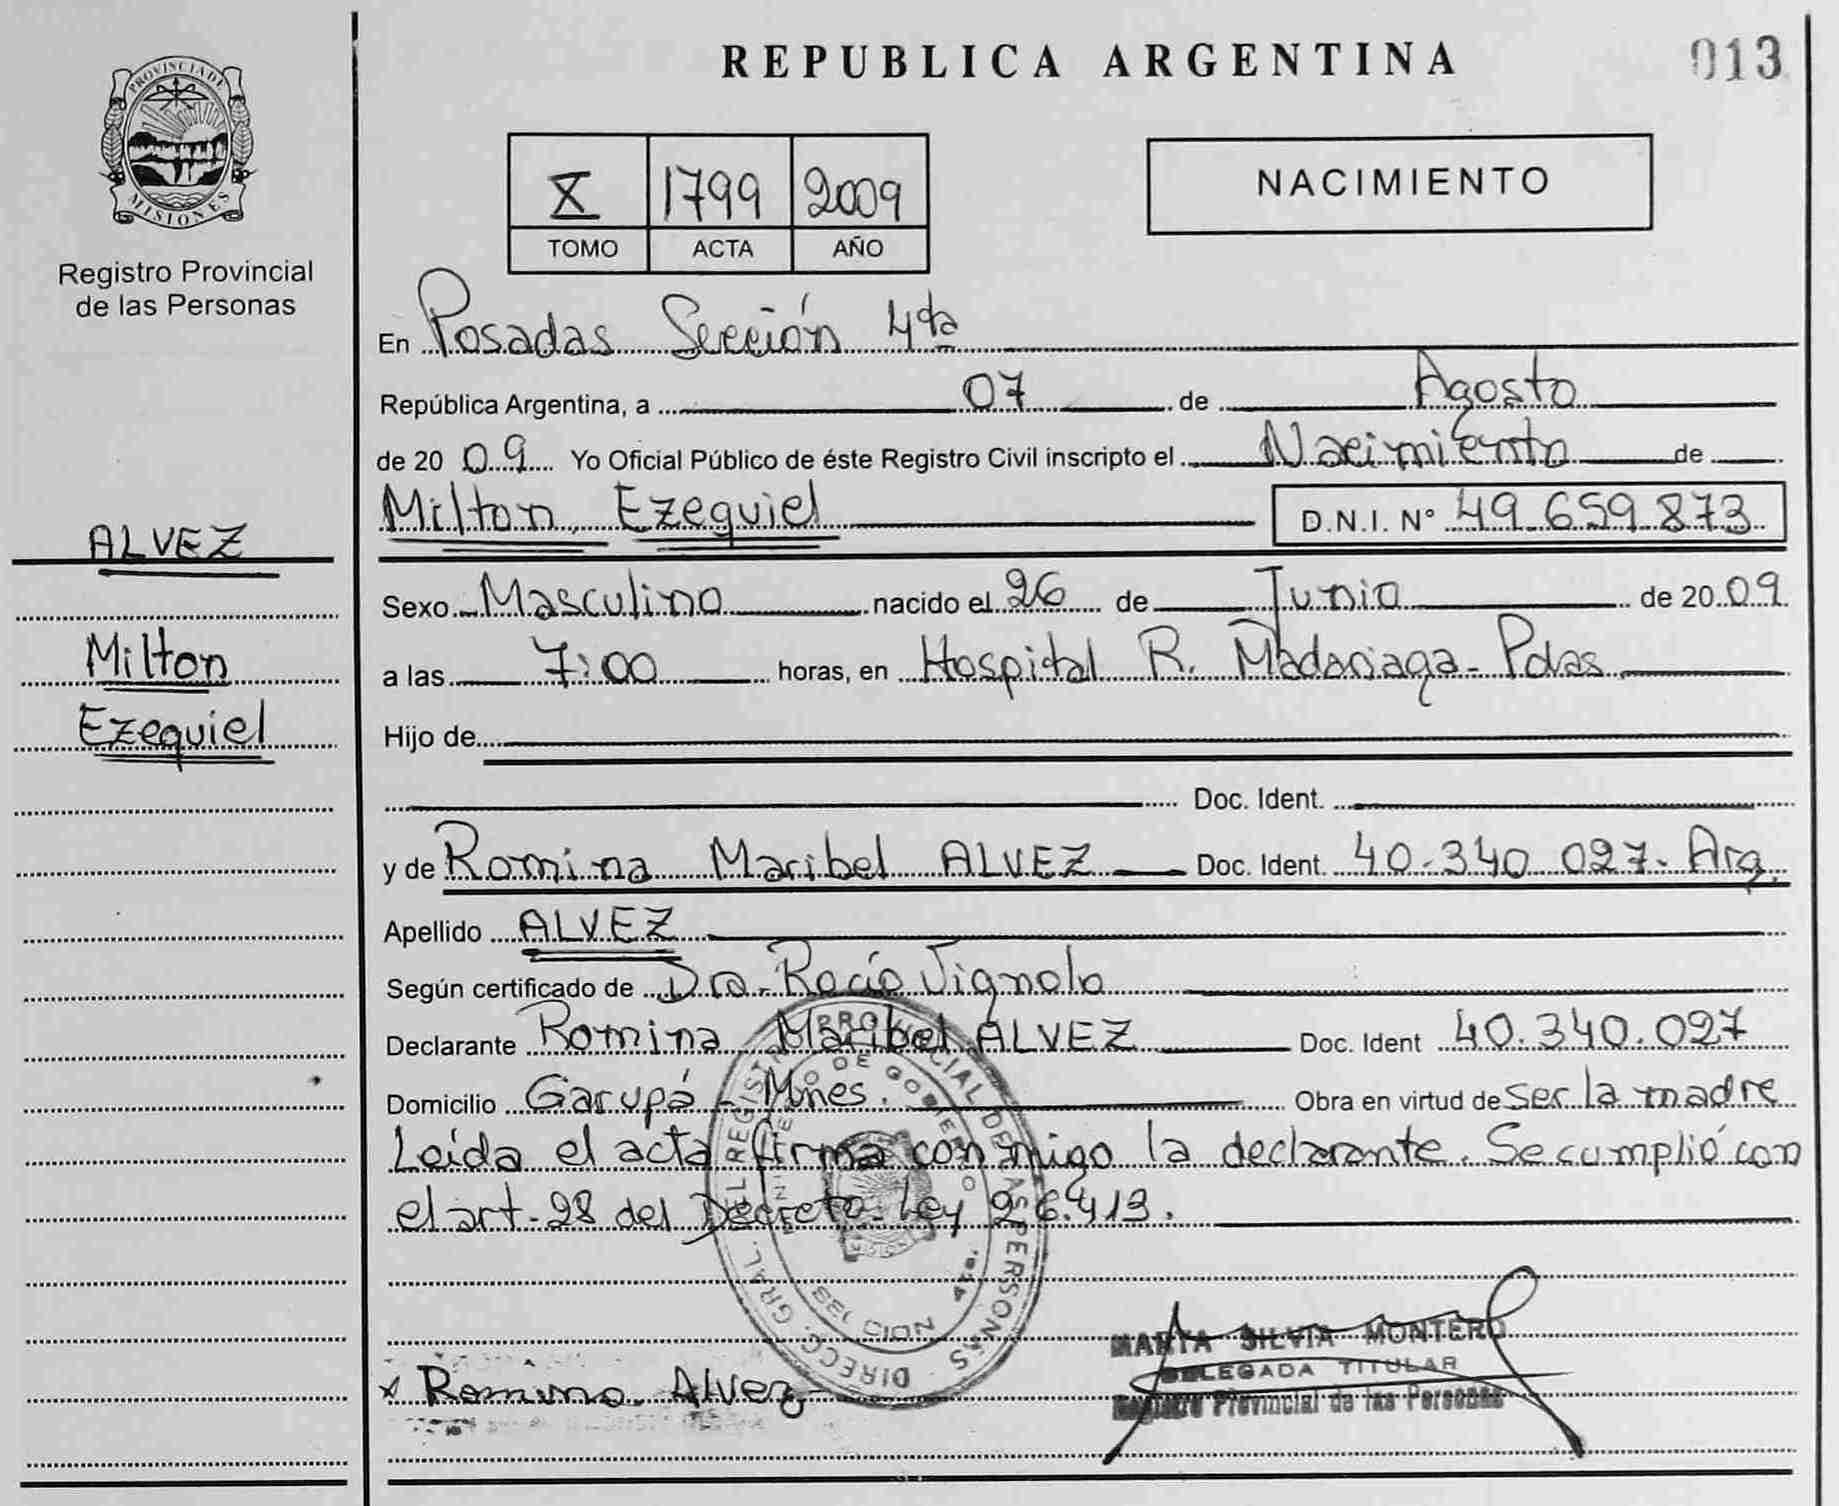 REPUBLICA ARGENTINA
013
PROVINCIA DE
MISIONES
Registro Provincial
de las Personas
X 1799 2009
TOMO ACTA AÑO
NACIMIENTO
En Posadas Sección 4ta
República Argentina, a 07 de Agosto
de 2009 Yo Oficial Público de éste Registro Civil inscripto el Nacimiento de
Milton Ezequiel D.N.I. N° 49.659.873
ALVEZ
Milton
Ezequiel
Sexo Masculino nacido el 26 de Junio de 2009
a las 7:00 horas, en Hospital R. Madariaga - Pdas
Hijo de
Doc. Ident.
y de Romina Maribel ALVEZ Doc. Ident. 40.340.027- Arg.
Apellido ALVEZ
Según certificado de Dra. Rocío Vignolo
Declarante Romina Maribel ALVEZ Doc. Ident 40.340.027
Domicilio Garupá - Mnes. Obra en virtud de ser la madre
Leída el acta firma conmigo la declarante. Se cumplió con
el art. 28 del Decreto Ley 26.413.
DIRECC. GRAL. DEL REGISTRO PROVINCIAL DE LAS PERSONAS
x Romina Alvez
MARTA SILVIA MONTERO
DELEGADA TITULAR
Registro Provincial de las Personas